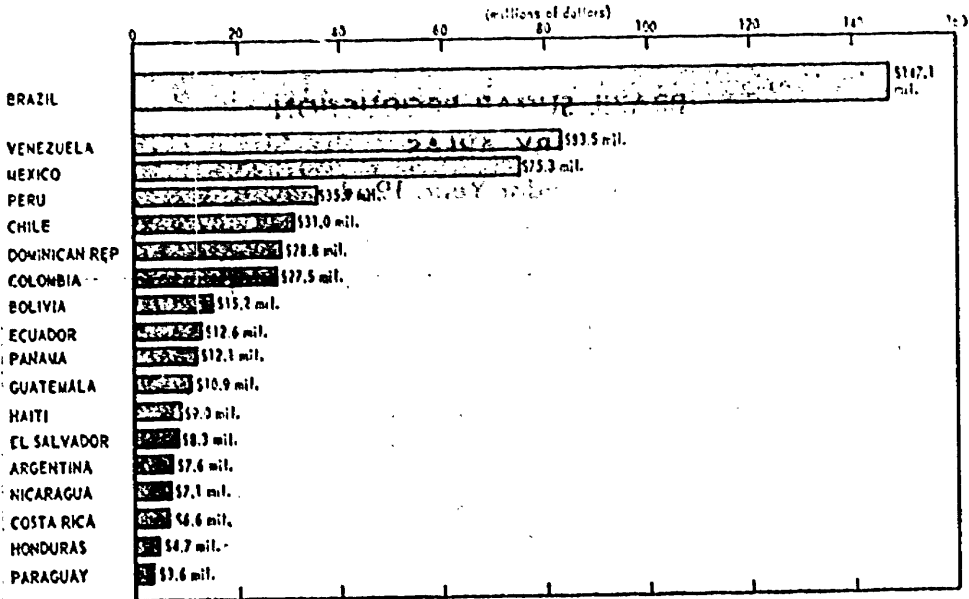 (millions of dollars)
0 20 40 60 80 100 120 140 160
BRAZIL $147.1 mil.
VENEZUELA $83.5 mil.
MEXICO $75.3 mil.
PERU mil.
CHILE $31.0 mil.
DOMINICAN REP $28.8 mil.
COLOMBIA $27.5 mil.
BOLIVIA $15.2 mil.
ECUADOR $12.6 mil.
PANAMA $12.1 mil.
GUATEMALA $10.9 mil.
HAITI $9.0 mil.
EL SALVADOR $8.3 mil.
ARGENTINA $7.6 mil.
NICARAGUA $7.1 mil.
COSTA RICA $6.6 mil.
HONDURAS $4.7 mil.
PARAGUAY $3.6 mil.